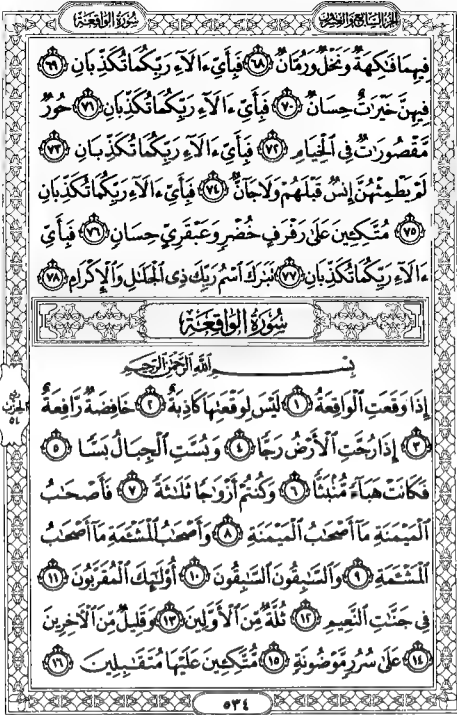 الجزء السابع والعشرون
سورة الواقعة
فِيهِمَا فَاكِهَةٌ وَنَخْلٌ وَرُمَّانٌ ٦٨ فَبِأَيِّ ءَالَآءِ رَبِّكُمَا تُكَذِّبَانِ ٦٩
فِيهِنَّ خَيْرَاتٌ حِسَانٌ ٧٠ فَبِأَيِّ ءَالَآءِ رَبِّكُمَا تُكَذِّبَانِ ٧١ حُورٌ
مَّقْصُورَاتٌ فِي ٱلْخِيَامِ ٧٢ فَبِأَيِّ ءَالَآءِ رَبِّكُمَا تُكَذِّبَانِ ٧٣
لَمْ يَطْمِثْهُنَّ إِنسٌ قَبْلَهُمْ وَلَا جَآنٌّ ٧٤ فَبِأَيِّ ءَالَآءِ رَبِّكُمَا تُكَذِّبَانِ
٧٥ مُتَّكِـِٔينَ عَلَىٰ رَفْرَفٍ خُضْرٍ وَعَبْقَرِيٍّ حِسَانٍ ٧٦ فَبِأَيِّ
ءَالَآءِ رَبِّكُمَا تُكَذِّبَانِ ٧٧ تَبَٰرَكَ ٱسْمُ رَبِّكَ ذِي ٱلْجَلَٰلِ وَٱلْإِكْرَامِ ٧٨
سُورَةُ الوَاقِعَةِ
بِسْمِ ٱللَّهِ ٱلرَّحْمَٰنِ ٱلرَّحِيمِ
إِذَا وَقَعَتِ ٱلْوَاقِعَةُ ١ لَيْسَ لِوَقْعَتِهَا كَاذِبَةٌ ٢ خَافِضَةٌ رَّافِعَةٌ
٣ إِذَا رُجَّتِ ٱلْأَرْضُ رَجًّا ٤ وَبُسَّتِ ٱلْجِبَالُ بَسًّا ٥
فَكَانَتْ هَبَآءً مُّنۢبَثًّا ٦ وَكُنتُمْ أَزْوَٰجًا ثَلَٰثَةً ٧ فَأَصْحَٰبُ
ٱلْمَيْمَنَةِ مَآ أَصْحَٰبُ ٱلْمَيْمَنَةِ ٨ وَأَصْحَٰبُ ٱلْمَشْـَٔمَةِ مَآ أَصْحَٰبُ
ٱلْمَشْـَٔمَةِ ٩ وَٱلسَّٰبِقُونَ ٱلسَّٰبِقُونَ ١٠ أُو۟لَٰٓئِكَ ٱلْمُقَرَّبُونَ ١١
فِي جَنَّٰتِ ٱلنَّعِيمِ ١٢ ثُلَّةٌ مِّنَ ٱلْأَوَّلِينَ ١٣ وَقَلِيلٌ مِّنَ ٱلْءَاخِرِينَ
١٤ عَلَىٰ سُرُرٍ مَّوْضُونَةٍ ١٥ مُّتَّكِـِٔينَ عَلَيْهَا مُتَقَٰبِلِينَ ١٦
الحزب
٥٤
٥٣٤